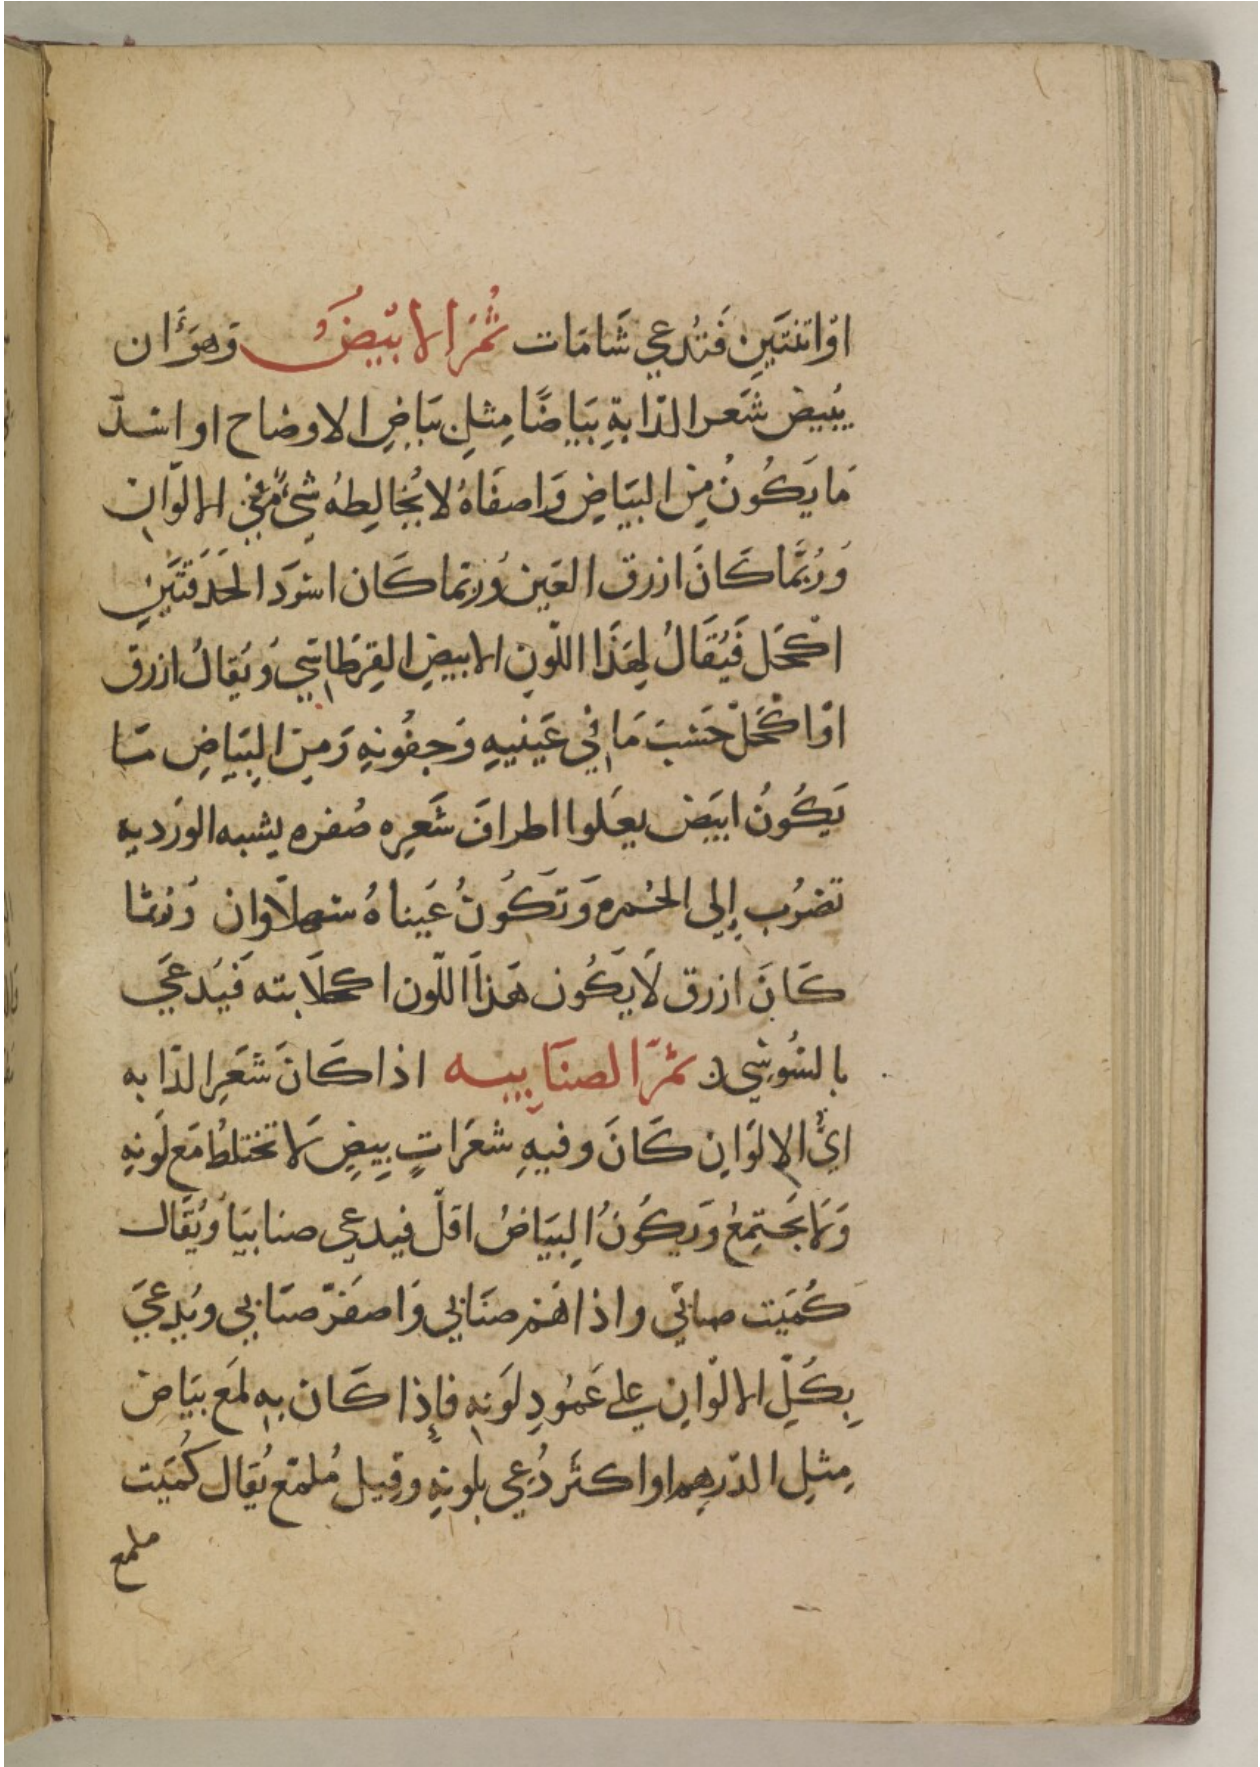 اوْ اتنتَينِ فَتُدعي شَامَات ثُمَّ الابيَضُ وَهوَ أن
يبيض شَعر الدّابةِ بَيَاضًا مِثلِ بَياضِ الاوضاح او اشدّ
مَا يَكُونُ مِن البَيَاضِ وَاصفَاهُ لا يُخالِطهُ شيءٌ مِن الالوَانِ
وَرُبَّمَا كَانَ ازرق العَينِ وَربّما كَان اسوَد الحَدَقتَينِ
اكحَل فَيُقَالُ لِهَذَا اللّونِ الابيضِ القِرطَاسي وَيُقالُ ازرق
اوْ اكحَلْ حَسَبَ مَا في عَينيهِ وَجفُونهِ وَمِنَ البَيَاضِ مَا
يَكُونُ ابيَض يعَلوا اطرافَ شَعرِه صُفره يشبه الورديه
تضرُب إلى الحُمره وَتَكُونُ عَيناهُ شهلاوان وَرُبّما
كَانَ ازرق لَا يَكُون هَذَا اللّون اكحلَا بته فَيُدعَي
بالسُوسِي ثمّ الصنَابيه اذا كَانَ شَعَرِ الدّابه
ايُّ الالوَانِ كَانَ وفيهِ شعَرَاتٍ بِيضِ لَا تختلطُ مَع لَونهِ
وَلَا تجَتمِعُ وَيكُونُ البَيَاضُ اقلّ فيدعي صنابيَا وَيُقَال
كُمَيَت صنابّي واذا هَم صنَابي وَاصفَرّ صنَابي ويُدعَيَ
بِكَلِّ الالوَانِ علي عَمُودِ لَونهِ فإذا كَان بهِ لمَع بيَاض
مِثلِ الدّرهِم او اكثَر دُعِي بلونهِ وقيل مُلمّع يُقَال كُمَيَت
ملمع